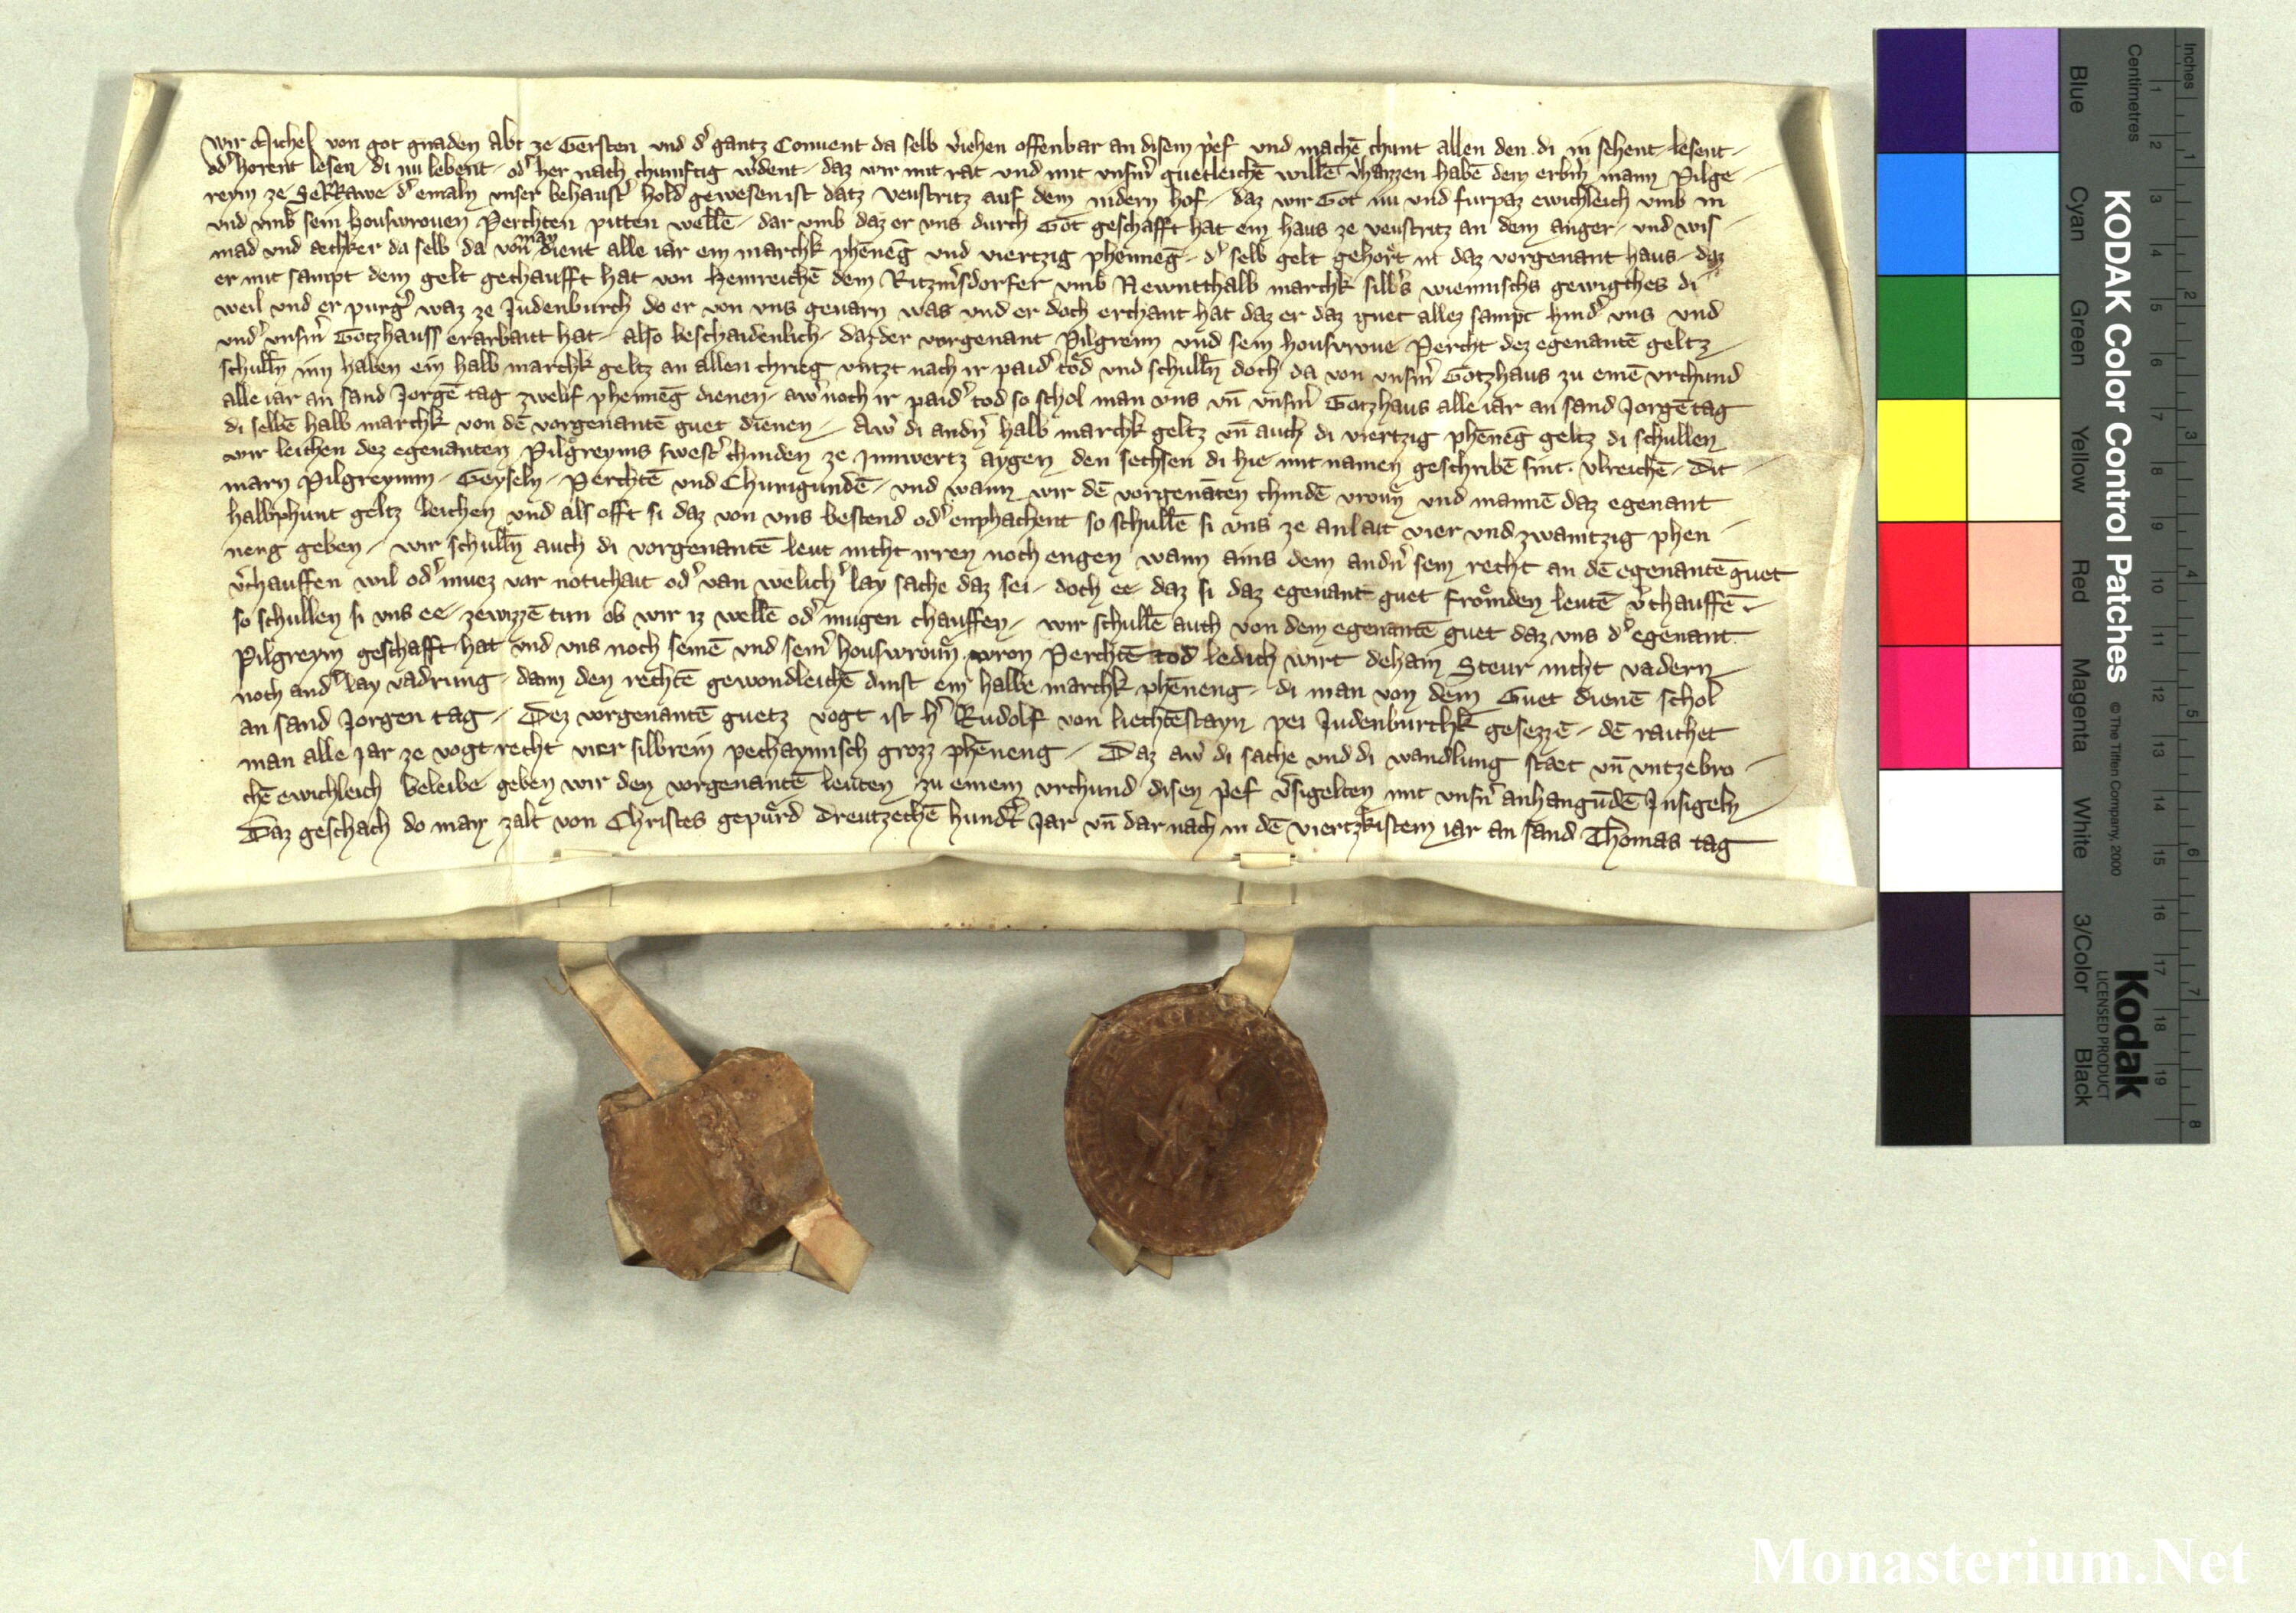 Wir Michel von got gnaden Abt ze Gersten und dˀ gantz Conuent da selb vˀiehen offenbar an disem pˀef und machē chunt allen den di in sehent lesent
odˀ horent lesen di nu lebent odˀ her nach chumftig wˀdent daz wir mit rat und mit unsm̄ guetleichē willē vˀhaizzen habē dem erbm̄ mann Pilge
reym ze Sekkawe dˀ emaln unser behaustˀ hold gewesen ist datz Veustritz auf dem nidern hof daz wir Got nu und furpaz ewichleich umb in
und umb sein housvrouen Perchten pitten wellē dar umb daz er uns durch Got geschafft hat ein haus ze veustritz an dem anger und wis
mad und aechker da selb da von man dient alle iar ein marchk phēnēg und viertzig phenneg dˀ selb gelt gehort in daz vorgenant haus daz
er mit sampt dem gelt gechaufft hat von Heinreichē dem Ritzmˀsdorfer umb Newntthalb marchk silbˀs wiennischs gewigthes di
weil und er purgˀ waz ze Judenburch do er von uns geuarn was und er doch erchant hat daz er daz guet allez sampt hindˀ uns und
undˀ unsm̄ Gotzhauss erarbaitt hat also beschaidenlich daz der vorgenant Pilgreim und sein housvroue Percht dez egenantē geltz
schulln̄ inn haben ein halb marchk geltz an allen chrieg untzt nach ir paidˀ tod und schulln̄ doch da von unsm̄ Gotzhaus zu einē vrchund
alle iar an sand Jorgē tag zwelif phennēg dienen awˀ noch ir paidˀ tod so schol man uns un̄ unsm̄ Gotzhaus alle iar an sand Jorgē tag
di selbē halb marchk von dē vorgenantē guet dienen Awˀ di andn̄ halb marchk geltz un̄ auch di viertzig phēnēg geltz di schullen
wir leichen dez egenanten Pilgreyms swestˀ chinden ze Innwertz aygen den sechsen di hie mit namen geschribē sint Ulreichē Dit
marn Pilgreymm Geyseln Perchtē und Chunigundē und wann wir dē vorgenāten chindē vroun̄ und mannē daz egenant
halbphunt geltz leichen und als offt si daz von uns bestend odˀ enphachent so schullē si uns ze anlait vier und zwaintzig phen
neng geben wir schulln̄ auch di vorgenantē leut nicht irren noch engen wann ains dem andn̄ sein recht an dē egenantē guet
vˀchauffen wil odˀ muez var notichait odˀ van welichˀ lay sache daz sei doch ee daz si daz egenant guet fromden leutē vˀchauffē
so schullen si uns ee zewizzē tun ob wir iz wellē odˀ mugen chauffen wir schullē auch von dem egenantē guet daz uns dˀ egenant
Pilgreym geschafft hat und uns noch seinē und seinˀ housvroun̄ vron Perchtē tod ledich wirt dehain Steur nicht vadern
noch andˀ lay vadrung dann den rechtē gewondleichē dinst ein halbe marchk phēneng di man von dem Guet dienē schol
an sand Jorgen tag Dez vorgenantē guetz vogt ist hˀ Rudolf von liechtēstayn pei Judenburchk gesezzē dē raichet
man alle Jar ze vogt recht vier silbrein pechaymisch grozz phēneng Daz awˀ di sache und di wandlung staet un̄ untzebro
chē ewichleich beleibe geben wir den vorgenantē leuten zu einem vrchund disen pˀef vˀsigelten mit unsn̄ anhangūdē Insigeln
Daz geschach do man zalt von Christes gepurd Dreutzechē hundˀt Jar un̄ dar nach in dē viertzkistem iar an sand Thomas tag
KODAK Color Control Patches
Kodak
LICENSED PRODUCT
© The Tiffen Company, 2000
Blue
Cyan
Green
Yellow
Red
Magenta
White
3/Color
Black
Inches
1 2 3 4 5 6 7 8
Centimetres
1 2 3 4 5 6 7 8 9 10 11 12 13 14 15 16 17 18 19
Monasterium.Net